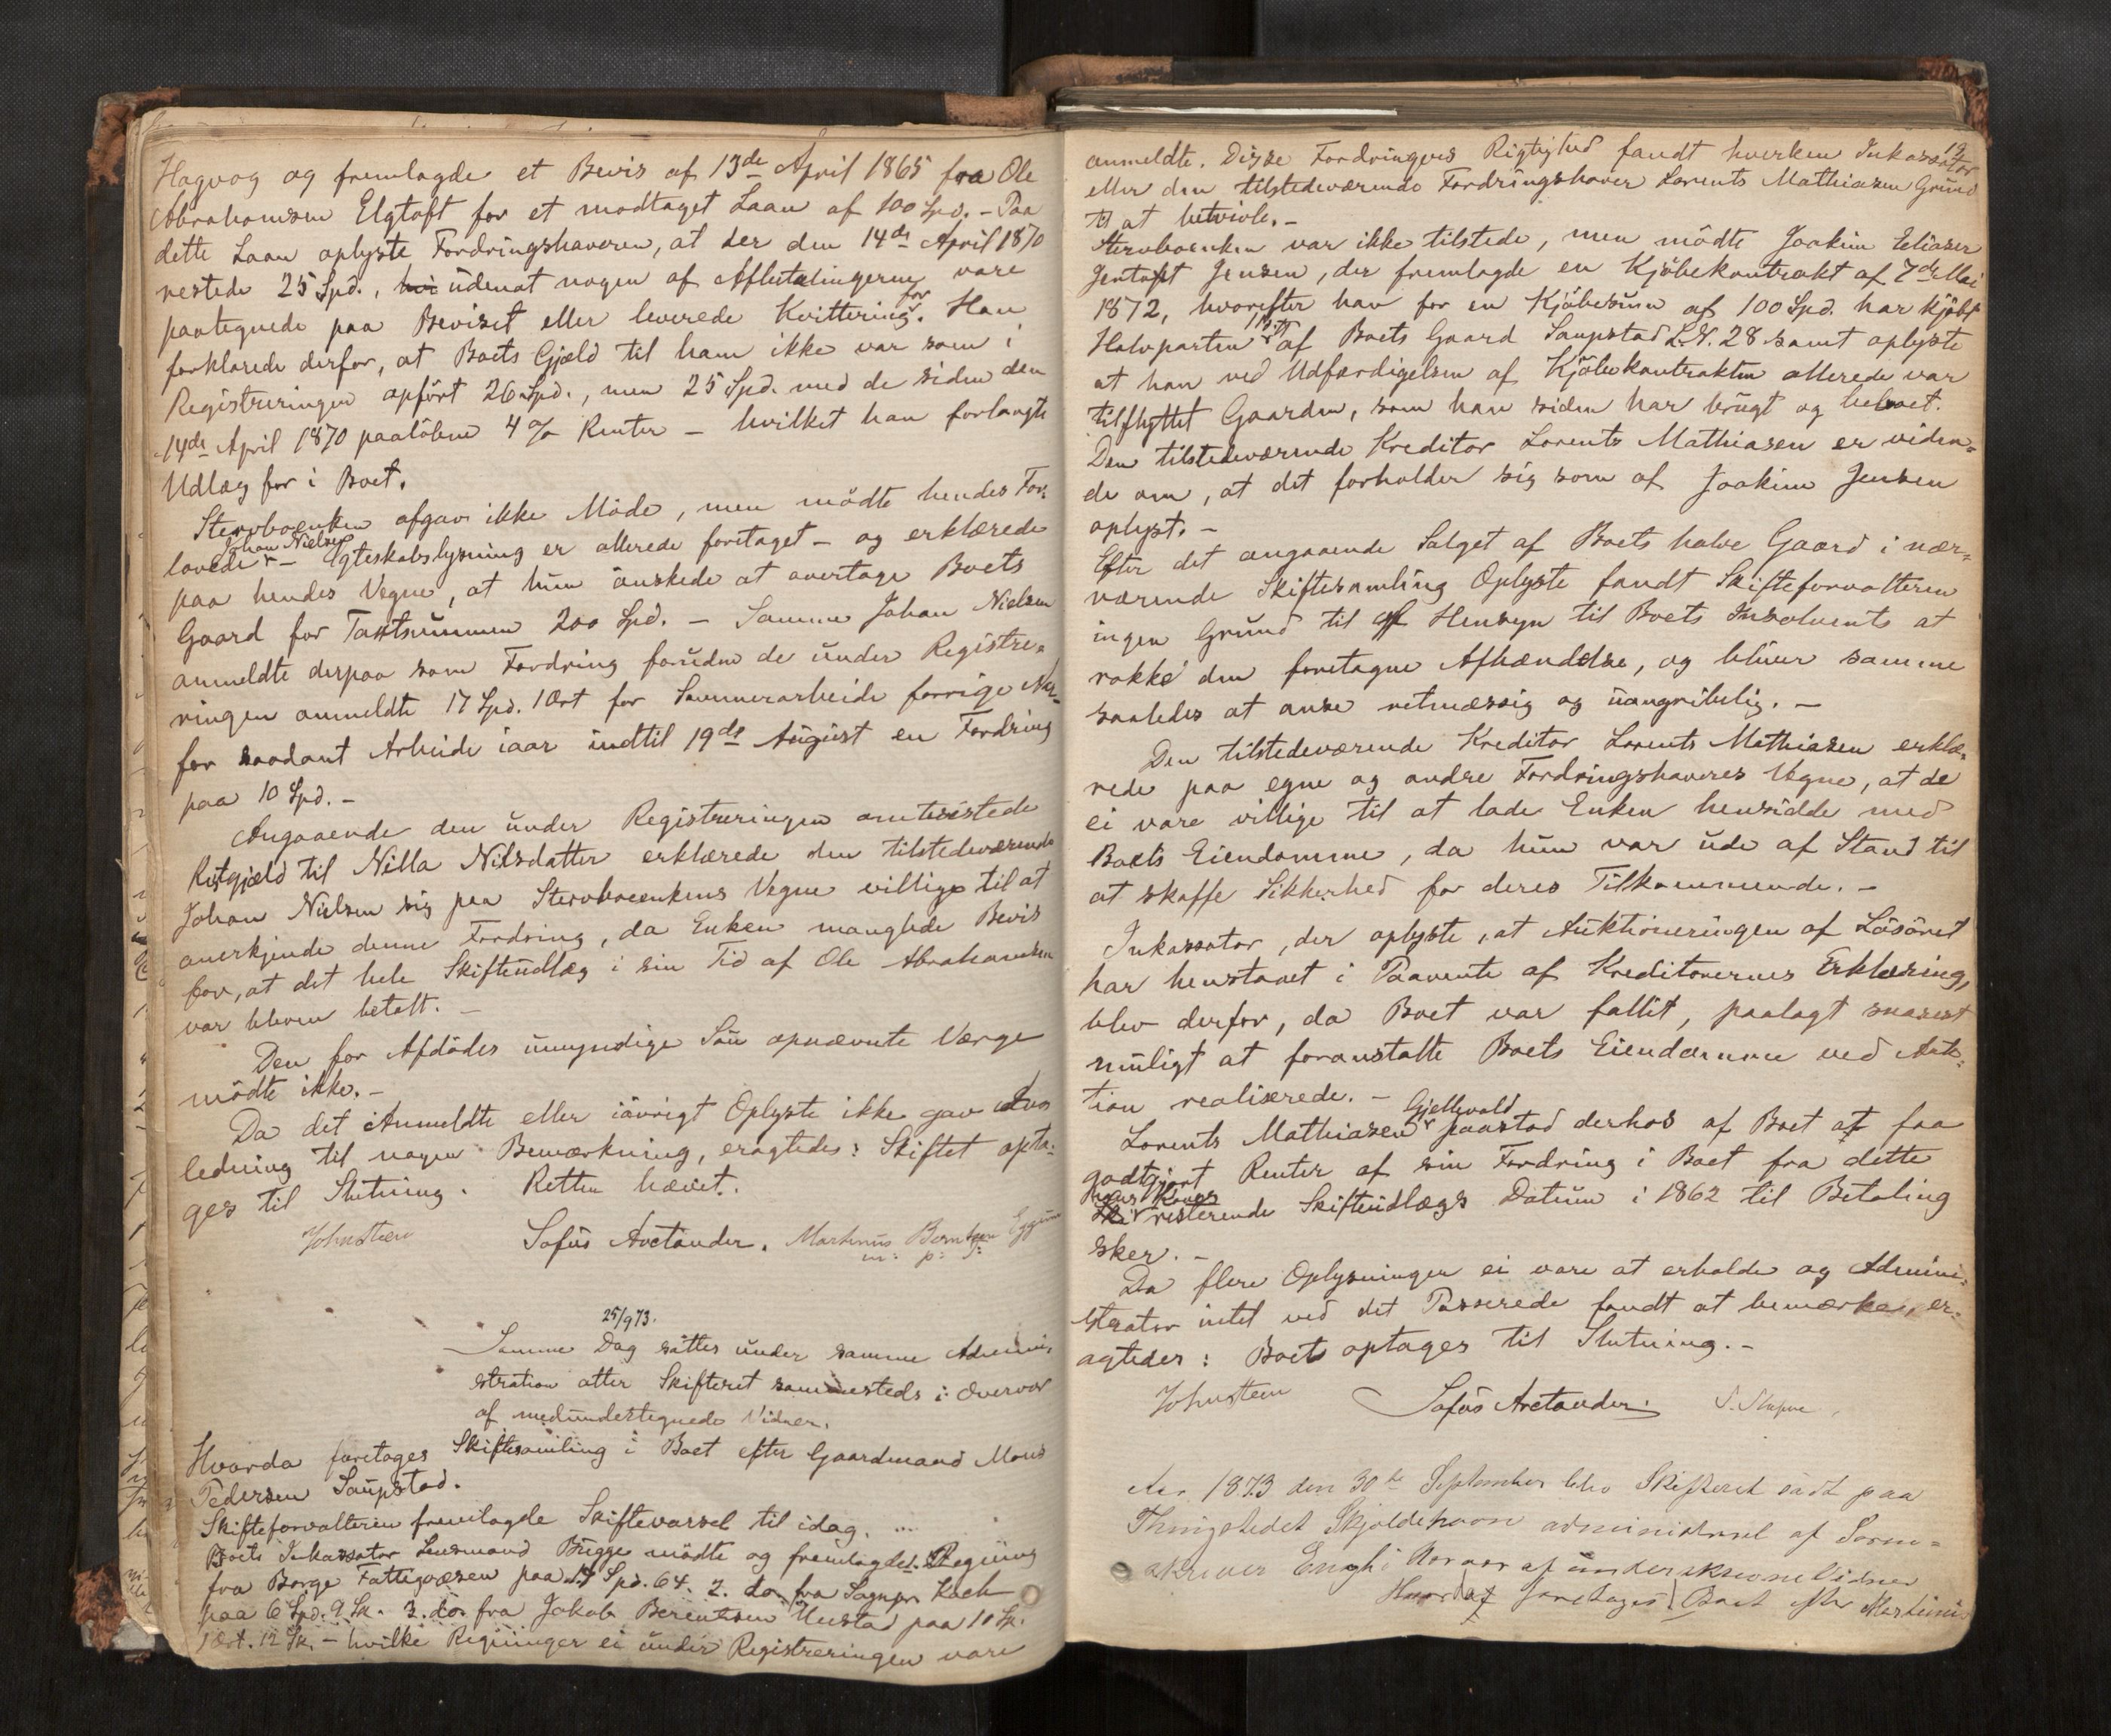 Hagvog og fremlagde et Bevis af 13de April 1865 fra Ole
Abrahamsen Elgtoft for et modtaget Laan af 100 Spd. - Paa
dette Laan oplyste Fordringshaveren, at der den 14de April 1870
restede 25 Spd., udenat nogen af Afbetalingerne vare
paategnede paa Beviset eller leverede Kvittering for. Han
forklarede derfor, at Boets Gjæld til ham ikke var som i
Registreringen opført 26 Spd., men 25 Spd. med de siden den
14de April 1870 paaløbne 4 % Renter - hvilket han forlangte
Udlæg for i Boet.
Stervboenken afgav ikke Møde, men mødte hendes For-
lovede Johan Nielsen - Egteskabslysning er allerede foretaget - og erklærede
paa hendes Vegne, at hun ønskede at overtage Boets
Gaard for Taxtsummen 200 Spd. - Samme Johan Nielsen
anmeldte derpaa som Fordring foruden de under Registre-
ringen anmeldte 17 Spd. 1 Ort for Sommerarbeide forrige Aar
for saadant Arbeide iaar indtil 19de August en Fordring
paa 10 Spd. -
Angaaende den under Registreringen omtvistede
Restgjæld til Nilla Nilsdatter erklærede den tilstedeværende
Johan Nielsen sig paa Stervboenkens Vegne villige til at
anerkjende denne Fordring, da Enken manglede Bevis
for, at det hele Skifteudlæg i sin Tid af Ole Abrahamsen
var bleven betalt. -
Den for Afdødes umyndige Søn opnævnte Værge
mødte ikke. -
Da det Anmeldte eller iøvrigt Oplyste ikke gav An-
ledning til nogen Bemærkning, eragtedes: Skiftet opta-
ges til Slutning. Retten hævet.
Johnsteen Sofus Arctander. Martinus Berntsen Eggum
m: p: P:
25/9 73.
Samme Dag sattes under samme Admini-
stration atter Skifteret sammesteds i Overvær
af medundertegnede Vidner.
Hvorda foretoges Skiftesamling i Boet efter Gaardmand Mons
Pedersen Saupstad.
Skifteforvalteren fremlagde Skiftevarsel til idag.
Boets Inkassator Lensmand Brügge mødte og fremlagde 1. Regning
fra Borge Fattigvæsen paa 14 Spd. 64. 2. do fra Sognpr. Koch
paa 6 Spd. 9 Sk. 3. do. fra Jakob Berentsen Uestad paa 10 Sp.
1 Ort. 12 Sk. - hvilke Regninger ei under Registreringen vare
19
anmeldte. Disse Fordringers Rigtighed fandt hverken Inkassator
eller den tilstedeværende Fordringshaver Lorents Mathiasen Grund
til at betvivle. -
Stervboenken var ikke tilstede, men mødte Joakim Eliaser
Jentoft Jensen, der fremlagde en Kjøbekontrakt af 7de Mai
1872, hvorefter han for en Kjøbesum af 100 Spd. har kjøbt
Halvparten af Boets Gaard Saupstad L.N. 28 samt oplyste
at han ved Udfærdigelsen af Kjøbekontrakten allerede var
tilflyttet Gaarden, som han siden har brugt og beboet.
Den tilstedeværende Kreditor Lorents Mathiasen er viden-
de om, at det forholder sig som af Joakim Jensen
oplyst. -
Efter det angaaende Salget af Boets halve Gaard i nær-
værende Skiftesamling Oplyste fandt Skifteforvalteren
ingen Grund til af Hensyn til Boets Insolvents at
rokke den foretagne Afhændelse, og bliver samme
saaledes at anse retmæssig og uangribelig. -
Den tilstedeværende Kreditor Lorents Mathiasen erklæ-
rede paa egne og andre Fordringshaveres Vegne, at de
ei vare villige til at lade Enken hensidde med
Boets Eiendomme, da hun var ude af Stand til
at skaffe Sikkerhed for deres Tilkommende. -
Inkassator, der oplyste, at Auktioneringen af Løsøret
har henstaaet i Paavente af Kreditorernes Erklæring,
blev derfor, da Boet var fallit, paalagt snarest
muligt at foranstalte Boets Eiendomme ved Auk-
tion realiserede. -
Lorents Mathiasen Gjellevold paastod derhos af Boet at faa
godtgjort Renter af sin Fordring i Boet fra dette
hans Kones resterende Skifteudlægs Datum i 1862 til Betaling
sker. -
Da flere Oplysninger ei vare at erholde og Admini-
strator intet ved det Passerede fandt at bemærke, er-
agtedes: Boet optages til Slutning. -
Johnsteen Sofus Arctander.
Aar 1873 den 30te September blev Skifteret sadt paa
Thingstedet Skjoldehavn administreret af Soren-
skriver Engh i Nærvær af underskrevne Vidner
Hvorda foretoges Boet efter Martinus